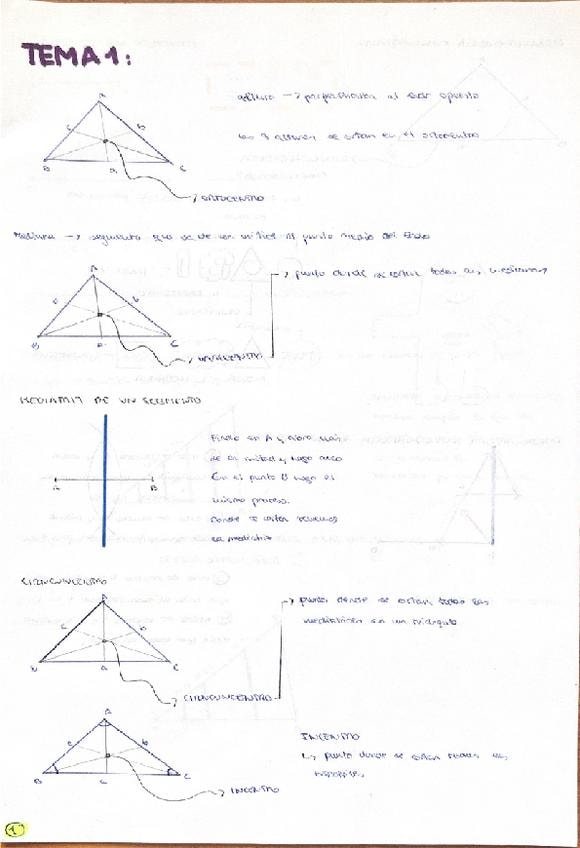 TEMA 1:
altura → perpendicular al lado opuesto
las 3 alturas se cortan en el ortocentro
A
c b
B a C
ORTOCENTRO
Mediana → segmento que va de un vértice al punto medio del lado
→ punto donde se cortan todas las medianas
A
c b
B a C
BARICENTRO
MEDIATRIZ DE UN SEGMENTO
Pincho en A y abro más
de la mitad y hago arco
Con el punto B hago el
mismo proceso.
Donde se corten tenemos
la mediatriz
A B
CIRCUNCENTRO
→ punto donde se cortan todas las
mediatrices en un triángulo
A
c b
B a C
CIRCUNCENTRO
A
c b
B C C
INCENTRO
INCENTRO
↳ punto donde se cortan todas las
1